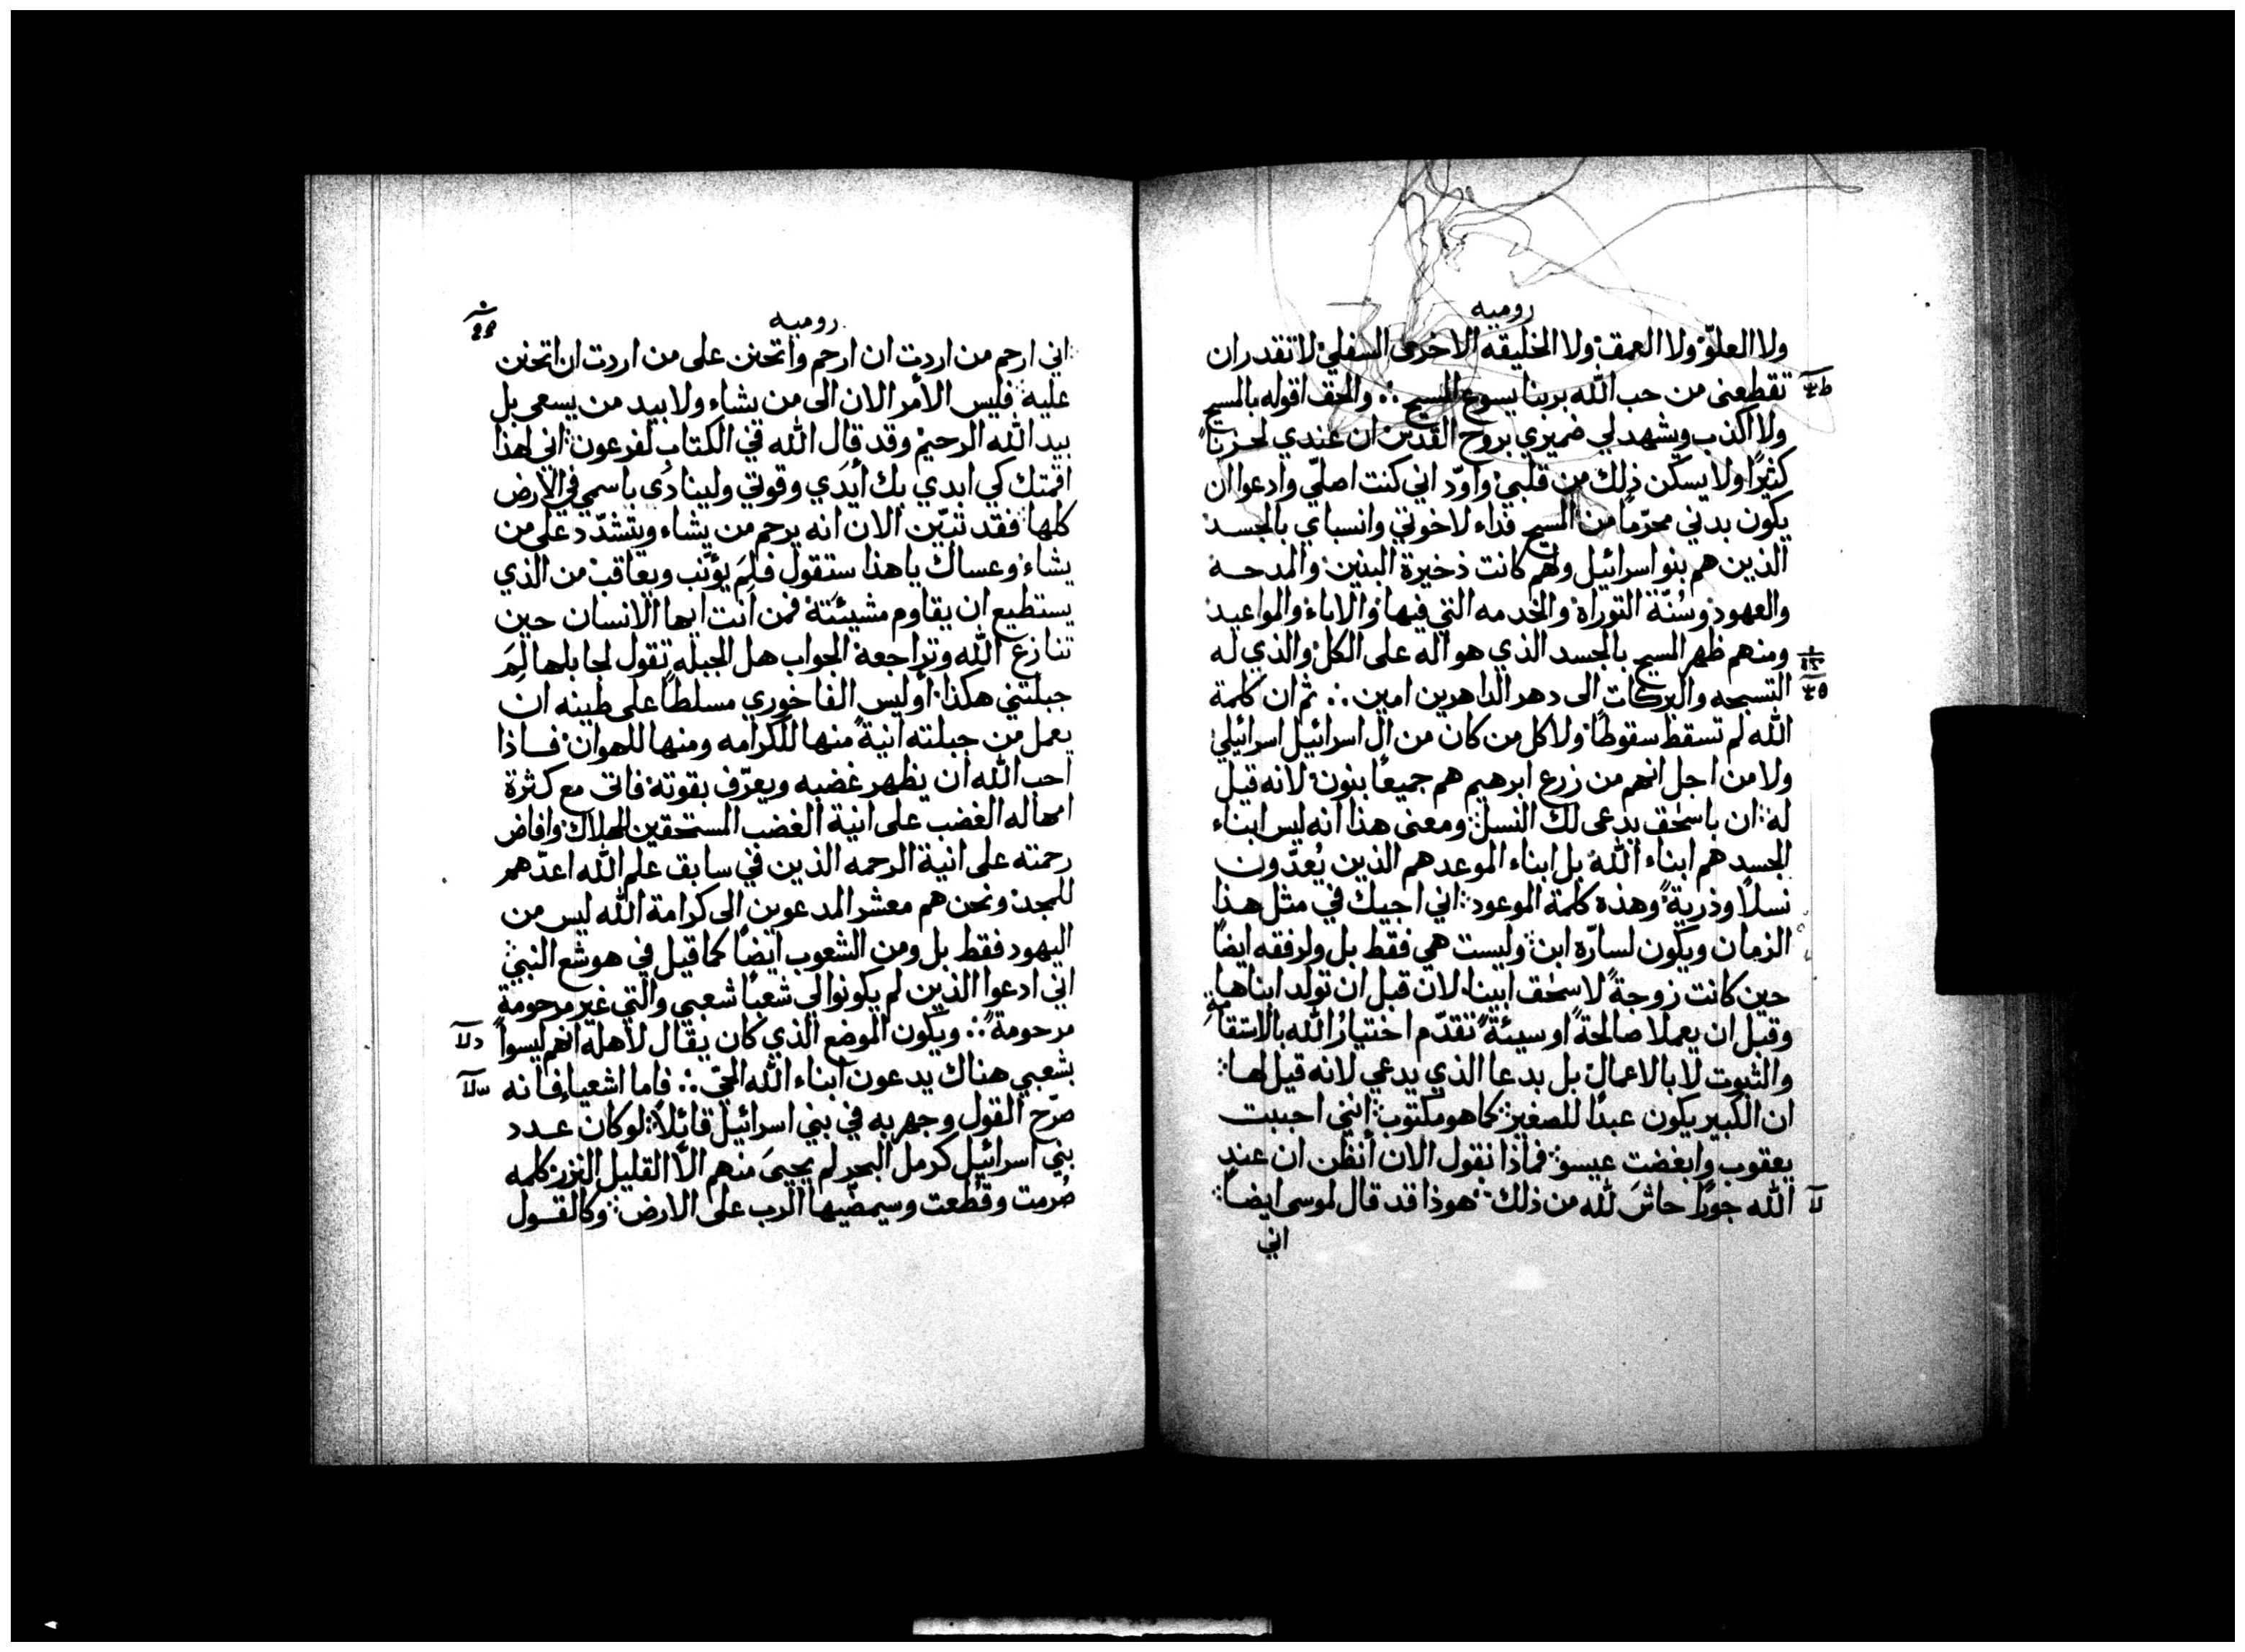 روميه
ولا العلوّ ولا العمق ولا الخليقه الاخرى السفلي لا تقدر ان
تقطعنى من حب الله بربنا يسوع المسيح ∴ والحق اقوله بالمسيح
ولا اكذب ويشهد لي ضميري بروح القدس ان عندي لحزنًا
كثيرًا ولا يسكن ذلك من قلبي واوّد اني كنت اصلّي وادعوا ان
يكون بدني محرّمًا من المسيح فداء لاخوتي وانسباي بالجسد
الذين هم بنو اسرائيل ولهم كانت ذخيرة البنين والمدحه
والعهود وسُنّة التوراة والخدمه التي فيها والاباء والمواعيد
ومنهم ظهر المسيح بالجسد الذي هو اله على الكل والذي له
التسبحه والبركات الى دهر الداهرين امين ∴ ثم ان كلمة
الله لم تسقط سقوطًا ولا كل من كان من ال اسرائيل اسرائيلي
ولا من اجل انهم من زرع ابرهيم هم جميعًا بنون لانه قيل
له ان باسحق يدعى لك النسل ومعنى هذا انه ليس ابناء
الجسد هم ابناء الله بل ابناء الموعد هم الذين يُعدّون
نسلاً وذريةً وهذه كلمة الموعود اني اجيك في مثل هذا
الزمان ويكون لسارّه ابن وليست هي فقط بل ولرفقه ايضًا
حين كانت زوجةً لاسحق ابينا لان قبل ان تولد ابناها
وقبل ان يعملا صالحةً او سيئةً تقدّم اختيارُ الله بالاستقامة
والثبوت لا بالاعمال بل بدعا الذي يدعي لانه قيل لها
ان الكبير يكون عبدًا للصغير كما هو مكتوب انني احببت
يعقوب وابغضت عيسو فماذا نقول الان أنظن ان عند
الله جورًا حاشَ لله من ذلك هوذا قد قال لموسى ايضًا
اني
روميه
اني ارحم من اردت ان ارحم واتحنن على من اردت ان اتحنن
عليه فليس الأمر الان الى من يشاء ولا بيد من يسعى بل
بيد الله الرحيم وقد قال الله في الكتاب لفرعون اني لهذا
اقمتك كي ابدي بك أيدي وقوتي ولينادَى باسمي في الارض
كلها فقد تبيّن الان انه يرحم من يشاء ويتشدّد على من
يشاء وعساك ياهذا ستقول فلِمَ يؤنب ويعاقب من الذي
يستطيع ان يقاوم مشيئته فمن انت ايها الانسان حين
تنازع الله وتراجعه الجواب هل الجبله تقول لجابلها لِمَ
جبلتني هكذا أوليس الفاخوري مسلطًا على طينه ان
يعمل من جبلته انيةً منها للكرامه ومنها للهوان فاذا
احب الله ان يظهر غضبه ويعرّف بقوته فاتى مع كثرة
امهاله الغضب على انية الغضب المستحقين للهلاك وافاض
رحمته على انية الرحمه الذين في سابق علم الله اعدّهم
للمجد ونحن هم معشر المدعوين الى كرامة الله ليس من
اليهود فقط بل ومن الشعوب ايضًا كما قيل في هوشع النبي
اني ادعوا الذين لم يكونوا لي شعبًا شعبي والتي غير مرحومة
مرحومةً ∴ ويكون الموضع الذي كان يقال لاهله انهم ليسوا
بشعبي هناك يدعون ابناء الله الحيّ ∴ فاما اشعياء فانه
صرّح القول وجهر به في بني اسرائيل قائلاً لو كان عدد
بني اسرائيل كرمل البحر لم يحييَ منهم الاّ القليل النزر كلمه
صُرمت وقُطعت وسيمضّيها الرب على الارض وكالقول